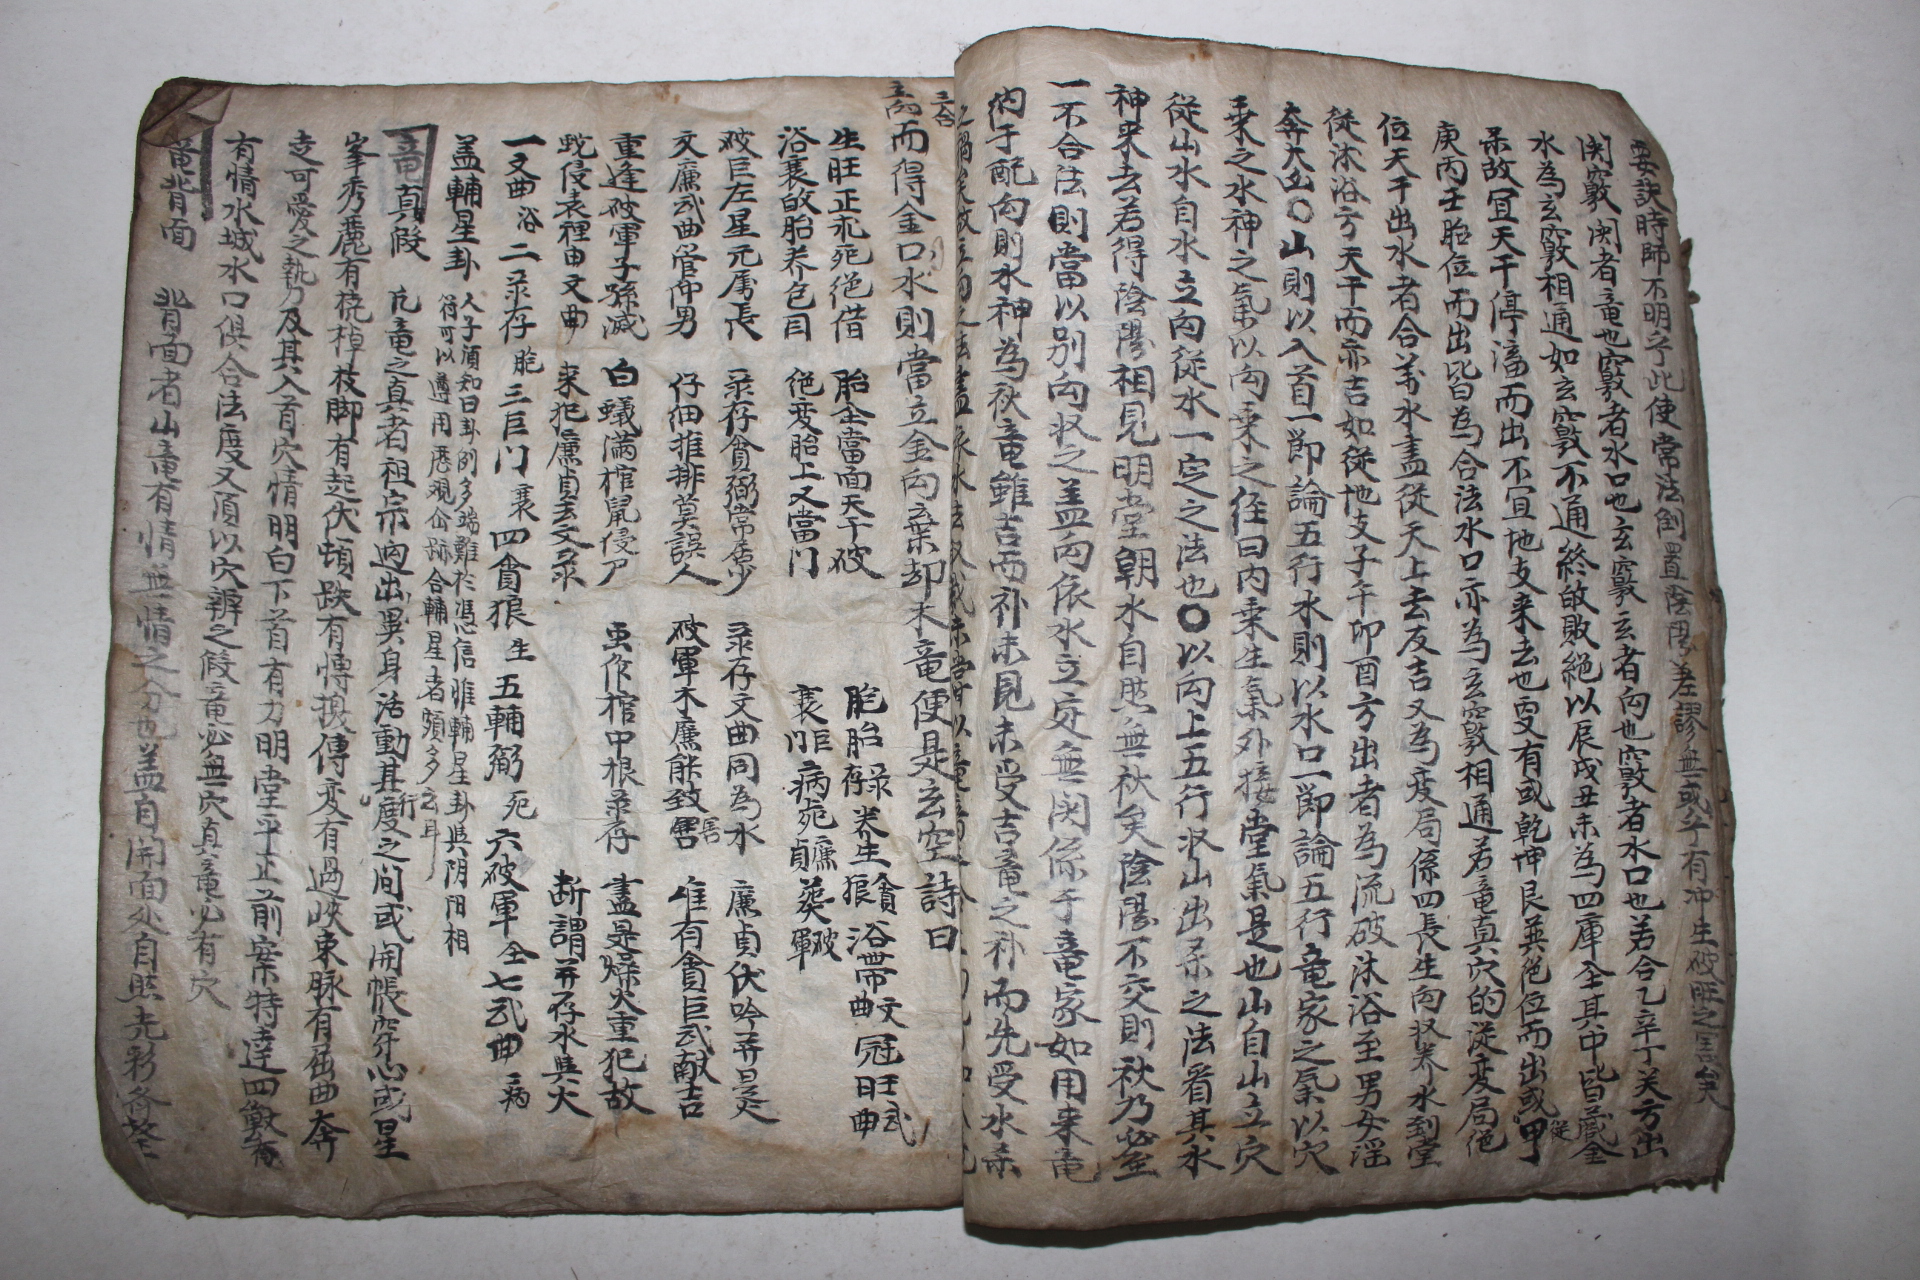 要訣時師不明乎此使常法倒置陰陽差謬無或乎有冲生破旺之言矣
関竅関者竜也竅者水口也玄竅玄者向也竅者水口也若合乙辛丁癸方出
水為玄竅相通如玄竅不通終敀敗絕以辰戌丑未為四庫全其中皆蔵金
杀故宜天干停滀而出不宜地支来去也更有或乾坤艮巽绝位而出或甲
庚丙壬胎位而出皆為合法水口亦為玄竅相通若竜真穴的從变局绝
位天干出水者合葬水盖從天上去反吉又為变局係四長生向収养水到堂
從沐浴方天干而亦吉如從地支子午卯酉方出者為流破沐浴至男女滛
奔大凶〇山則以入首一節論五行水則以水口一節論五行竜家之氣以穴
乗之水神之氣以向乗之径曰内乗生氣外接堂氣是也山自山立穴
從山水自水立向從水一定之法也〇以向上五行収山出杀之法看其水
神来去若得陰陽相見明堂朝水自然無秋矣陰陽不交則秋乃必至
一不合法則當以别向収之盖向依水立定無関係于竜家如用来竜
納于配向則水神為秋竜雖吉而补未見未受吉竜之补而先受水杀
而得金口水則當立金向棄却木竜便是玄空 詩曰
生旺正氶死绝借 胎全當面天干破 胞胎禄存养生貪狼浴帶文曲冠旺武曲
浴衰敀胎养色目 绝变胎上又當门 衰巨门病死廉貞葬破軍
破巨左星元属長 录存貪弼常居少 录存文曲同為水 廉貞伏吟并是火
文廉武曲管仲男 仔细推排莫誤人 破軍木廉能致害 唯有貪巨武献吉
重逢破軍子孫滅 白蟻满棺鼠侵尸 虫作棺中根录存 盖是燥火重犯故
蛇侵表裡由文曲 来犯廉貞去文录 断謂并存水與火
一文曲 浴 二录存 胞 三巨门 衰 四貪狼 生 五輔弼 死 六破軍 全 七武曲 病
盖輔星卦 人子須知曰卦例多端難於憑信惟輔星卦與阴阳相
符可以遵用 歷观仙跡合輔星者頗多云耳
竜真假 凡竜之真者祖宗迥出異身活動其行度之间或開帳穿心或星
峯秀麗有橈棹枝脚有起伏頓跌有博換傳变有過峽束脉有屈曲奔
走可愛之勢乃及其入首穴情明白下首有力明堂平正前案特達四獸有
有情水城水口俱合法度又須以穴辨之假竜必無穴真竜必有穴
竜背面 背面者山竜有情無情之分也盖自開面处自照光彩各整